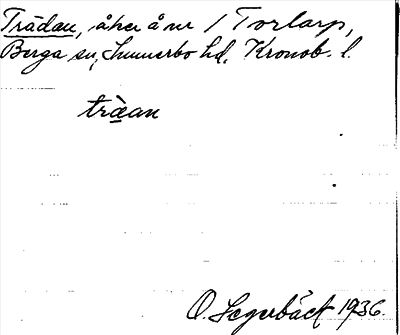 Trädan, åker å nr 1 Torlarp,
Berga sn, Sunnerbo hd, Kronob. l.
träan
O. Segerbäck 1936.